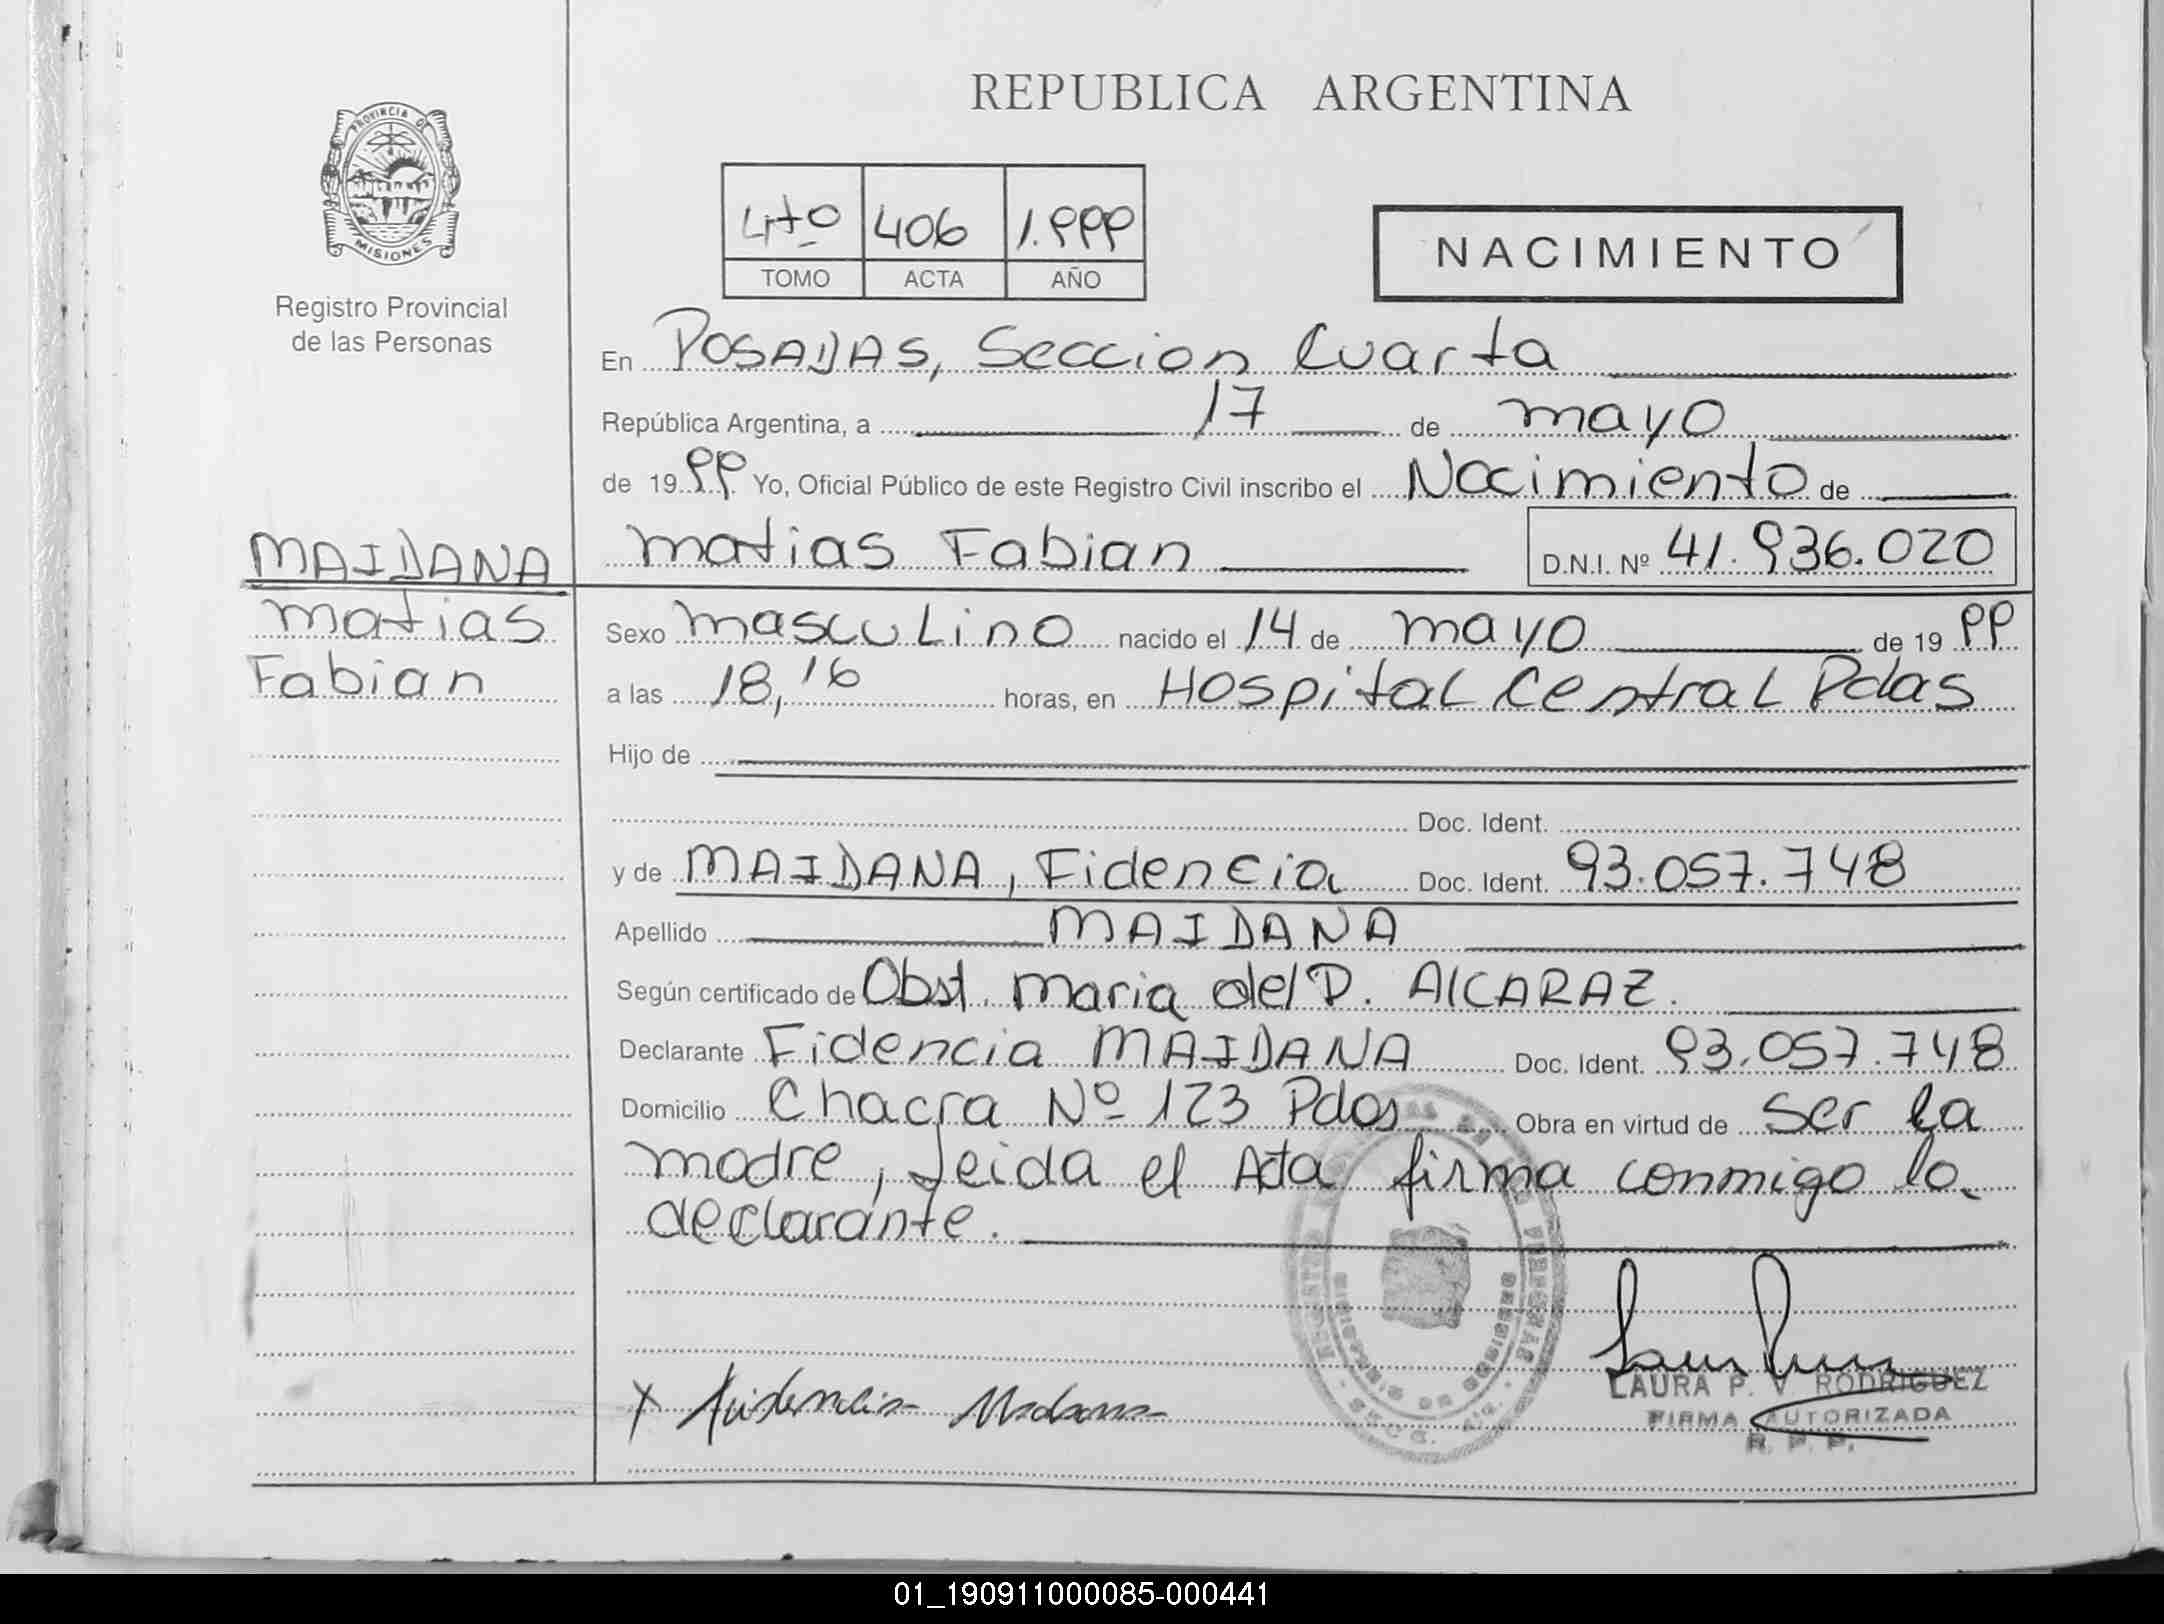 REPUBLICA ARGENTINA
PROVINCIA DE
MISIONES
Registro Provincial
de las Personas
4to 406 1.999
TOMO ACTA AÑO
NACIMIENTO
En POSADAS, Seccion Cuarta
República Argentina, a 17 de mayo
de 1999 Yo, Oficial Público de este Registro Civil inscribo el Nacimiento de
MAIDANA
matias Fabian D.N.I. Nº 41.936.020
matias
Fabian
Sexo masculino nacido el 14 de mayo de 1999
a las 18,16 horas, en Hospital Central Pdas
Hijo de
Doc. Ident.
y de MAIDANA, Fidencia Doc. Ident. 93.057.748
Apellido MAIDANA
Según certificado de Obst. maria del P. AlCARAZ.
Declarante Fidencia MAIDANA Doc. Ident. 93.057.748
Domicilio Chacra Nº 123 Pdas Obra en virtud de ser la
madre, Leida el Acta firma conmigo la
declarante.
X Fidencia Maidana
LAURA P. V. RODRIGUEZ
FIRMA AUTORIZADA
R. P. P.
01_190911000085-000441